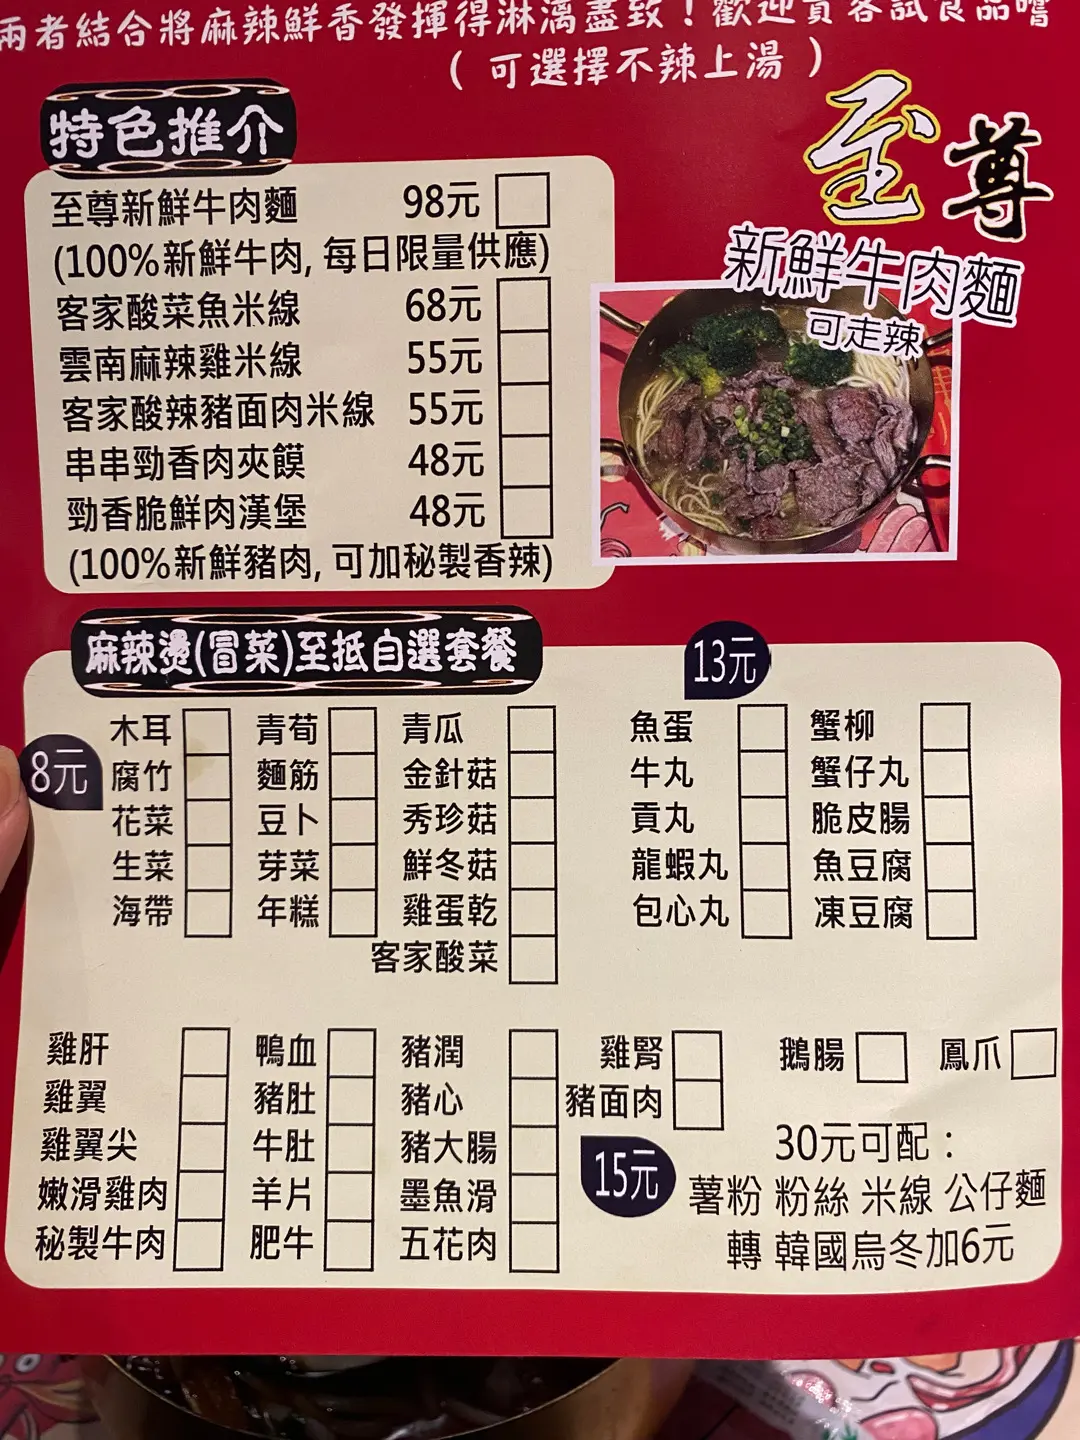 兩者結合將麻辣鮮香發揮得淋漓盡致！歡迎貴客試食品嚐
（可選擇不辣上湯）
特色推介
至尊
新鮮牛肉麵
可走辣
至尊新鮮牛肉麵 98元
(100%新鮮牛肉, 每日限量供應)
客家酸菜魚米線 68元
雲南麻辣雞米線 55元
客家酸辣豬面肉米線 55元
串串勁香肉夾饃 48元
勁香脆鮮肉漢堡 48元
(100%新鮮豬肉, 可加秘製香辣)
麻辣燙(冒菜)至抵自選套餐
8元
木耳 青荀 青瓜
腐竹 麵筋 金針菇
花菜 豆卜 秀珍菇
生菜 芽菜 鮮冬菇
海帶 年糕 雞蛋乾
客家酸菜
13元
魚蛋 蟹柳
牛丸 蟹仔丸
貢丸 脆皮腸
龍蝦丸 魚豆腐
包心丸 凍豆腐
雞肝 鴨血 豬潤 雞腎 鵝腸 鳳爪
雞翼 豬肚 豬心 豬面肉
雞翼尖 牛肚 豬大腸
嫩滑雞肉 羊片 墨魚滑
秘製牛肉 肥牛 五花肉
15元
30元可配：
薯粉 粉絲 米線 公仔麵
轉 韓國烏冬加6元